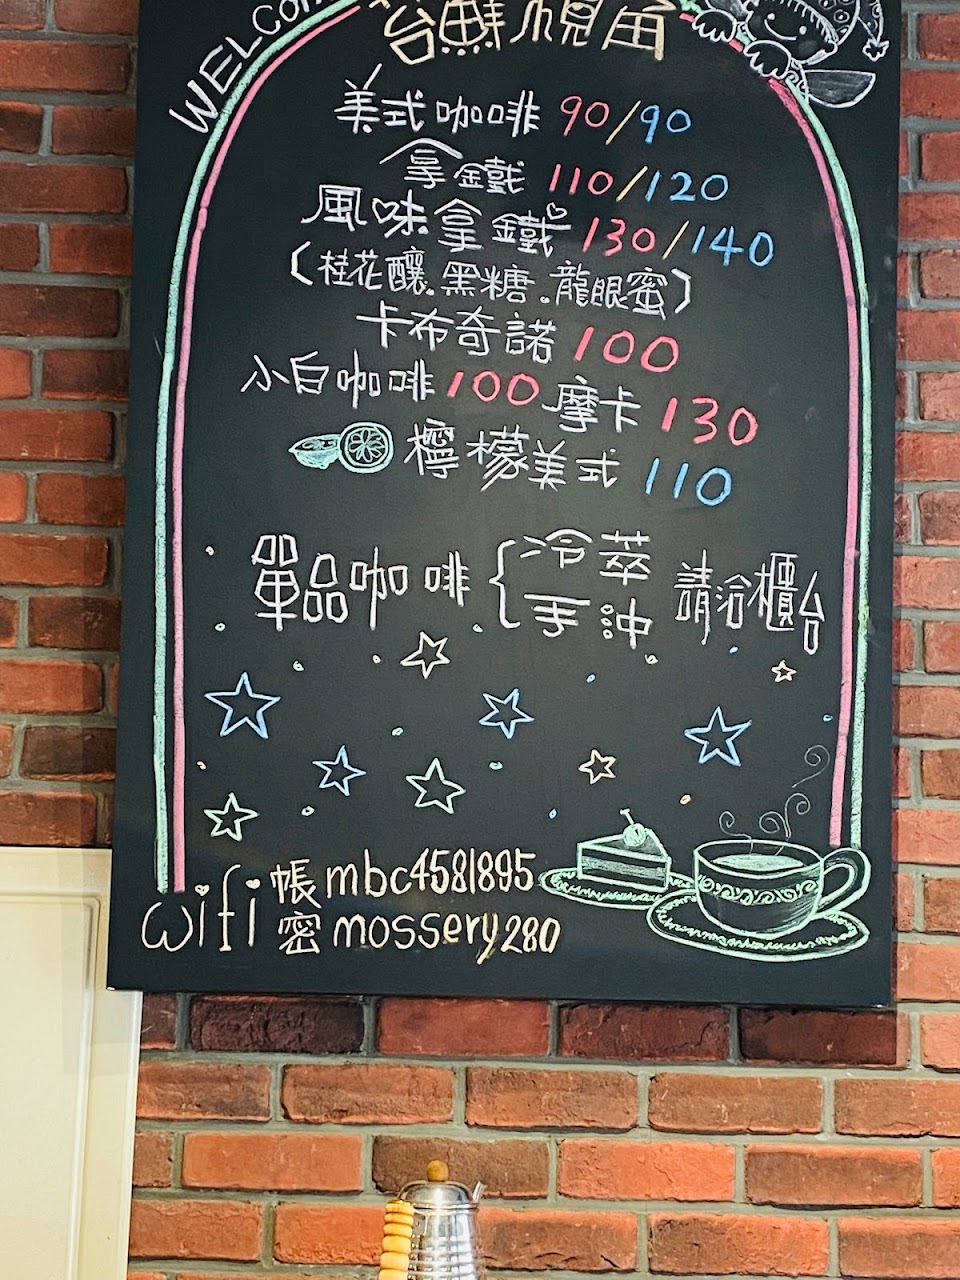 WELCOM
苔鮮視角
美式咖啡 90/90
拿鐵 110/120
風味拿鐵 130/140
(桂花釀.黑糖.龍眼蜜)
卡布奇諾 100
小白咖啡 100 摩卡 130
檸檬美式 110
單品咖啡 { 冷萃 手沖 請洽櫃台
wifi 帳 mbc4581895
密 mossery280